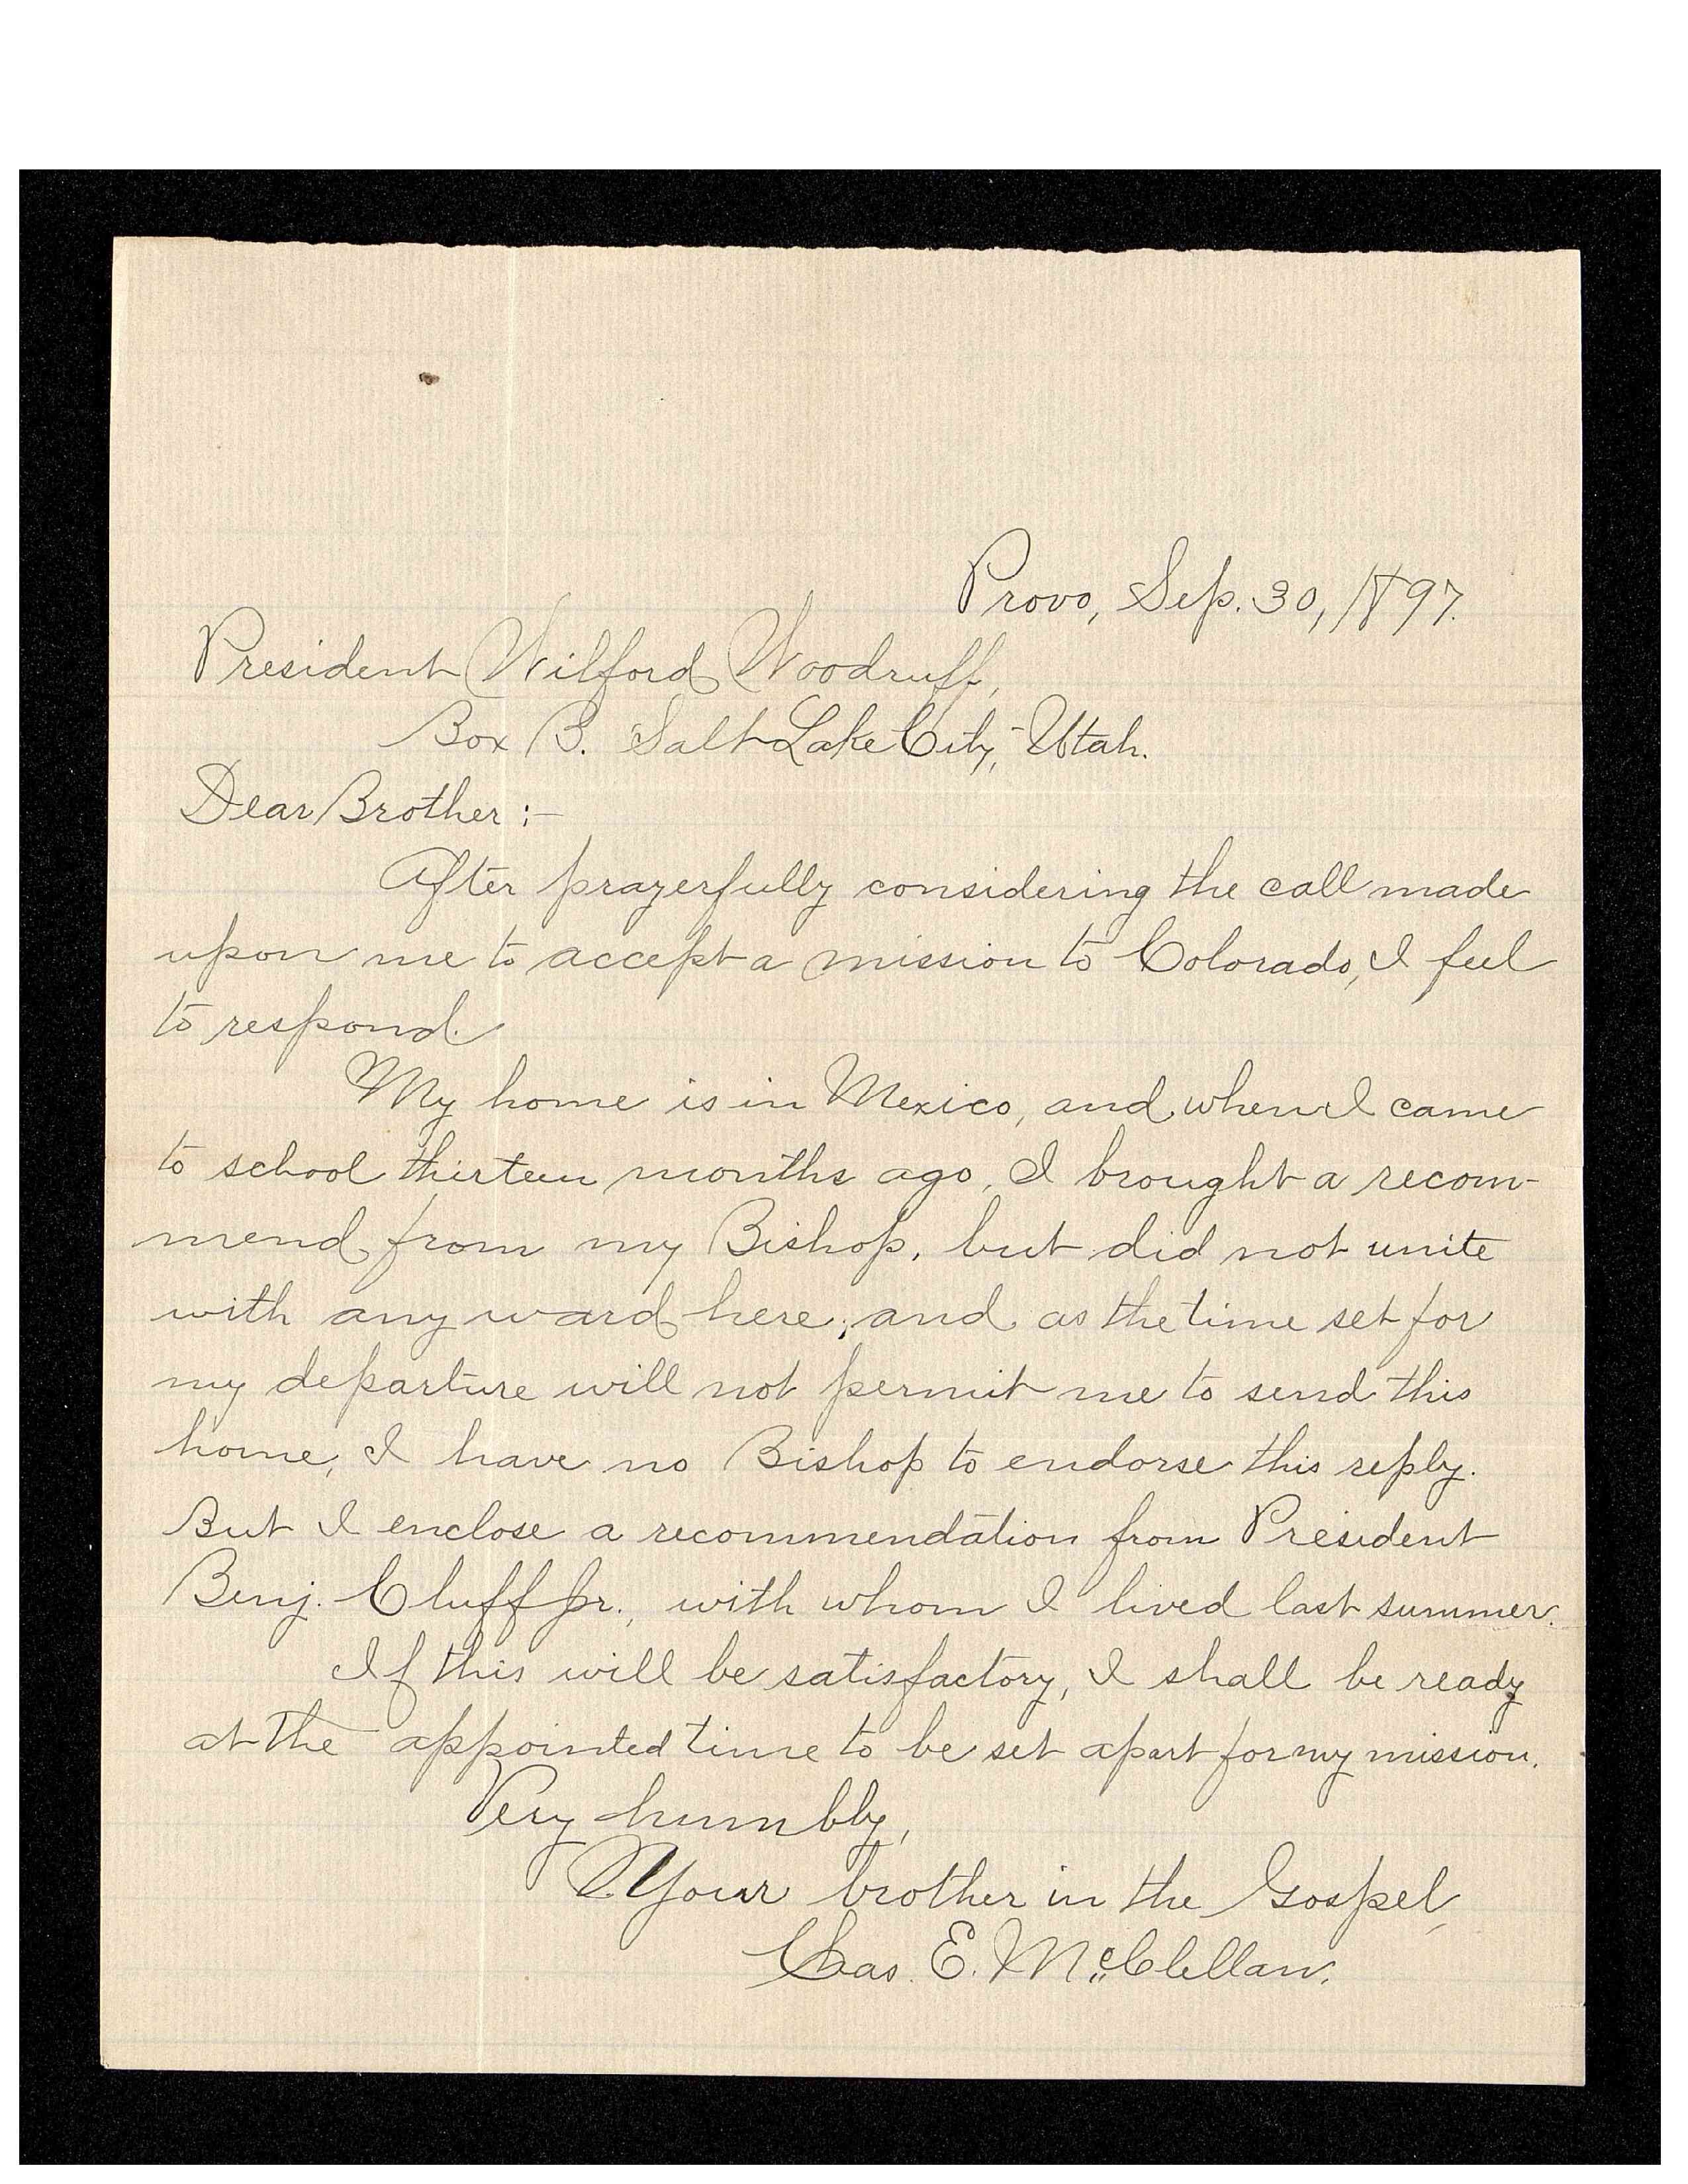 Provo, Sep. 30, 1897.
President Wilford Woodruff,
Box B. Salt Lake City, Utah.
Dear Brother:-
After prayerfully considering the call made
upon me to accept a mission to Colorado, I feel
to respond.
My home is in Mexico, and when I came
to school thirteen months ago, I brought a recom-
mend from my Bishop, but did not unite
with any ward here; and as the time set for
my departure will not permit me to send this
home, I have no Bishop to endorse this reply.
But I enclose a recommendation from President
Benj. Cluff Jr., with whom I lived last summer.
If this will be satisfactory, I shall be ready
at the appointed time to be set apart for my mission.
Very humbly,
Your brother in the Gospel,
Chas. E. McClellan.